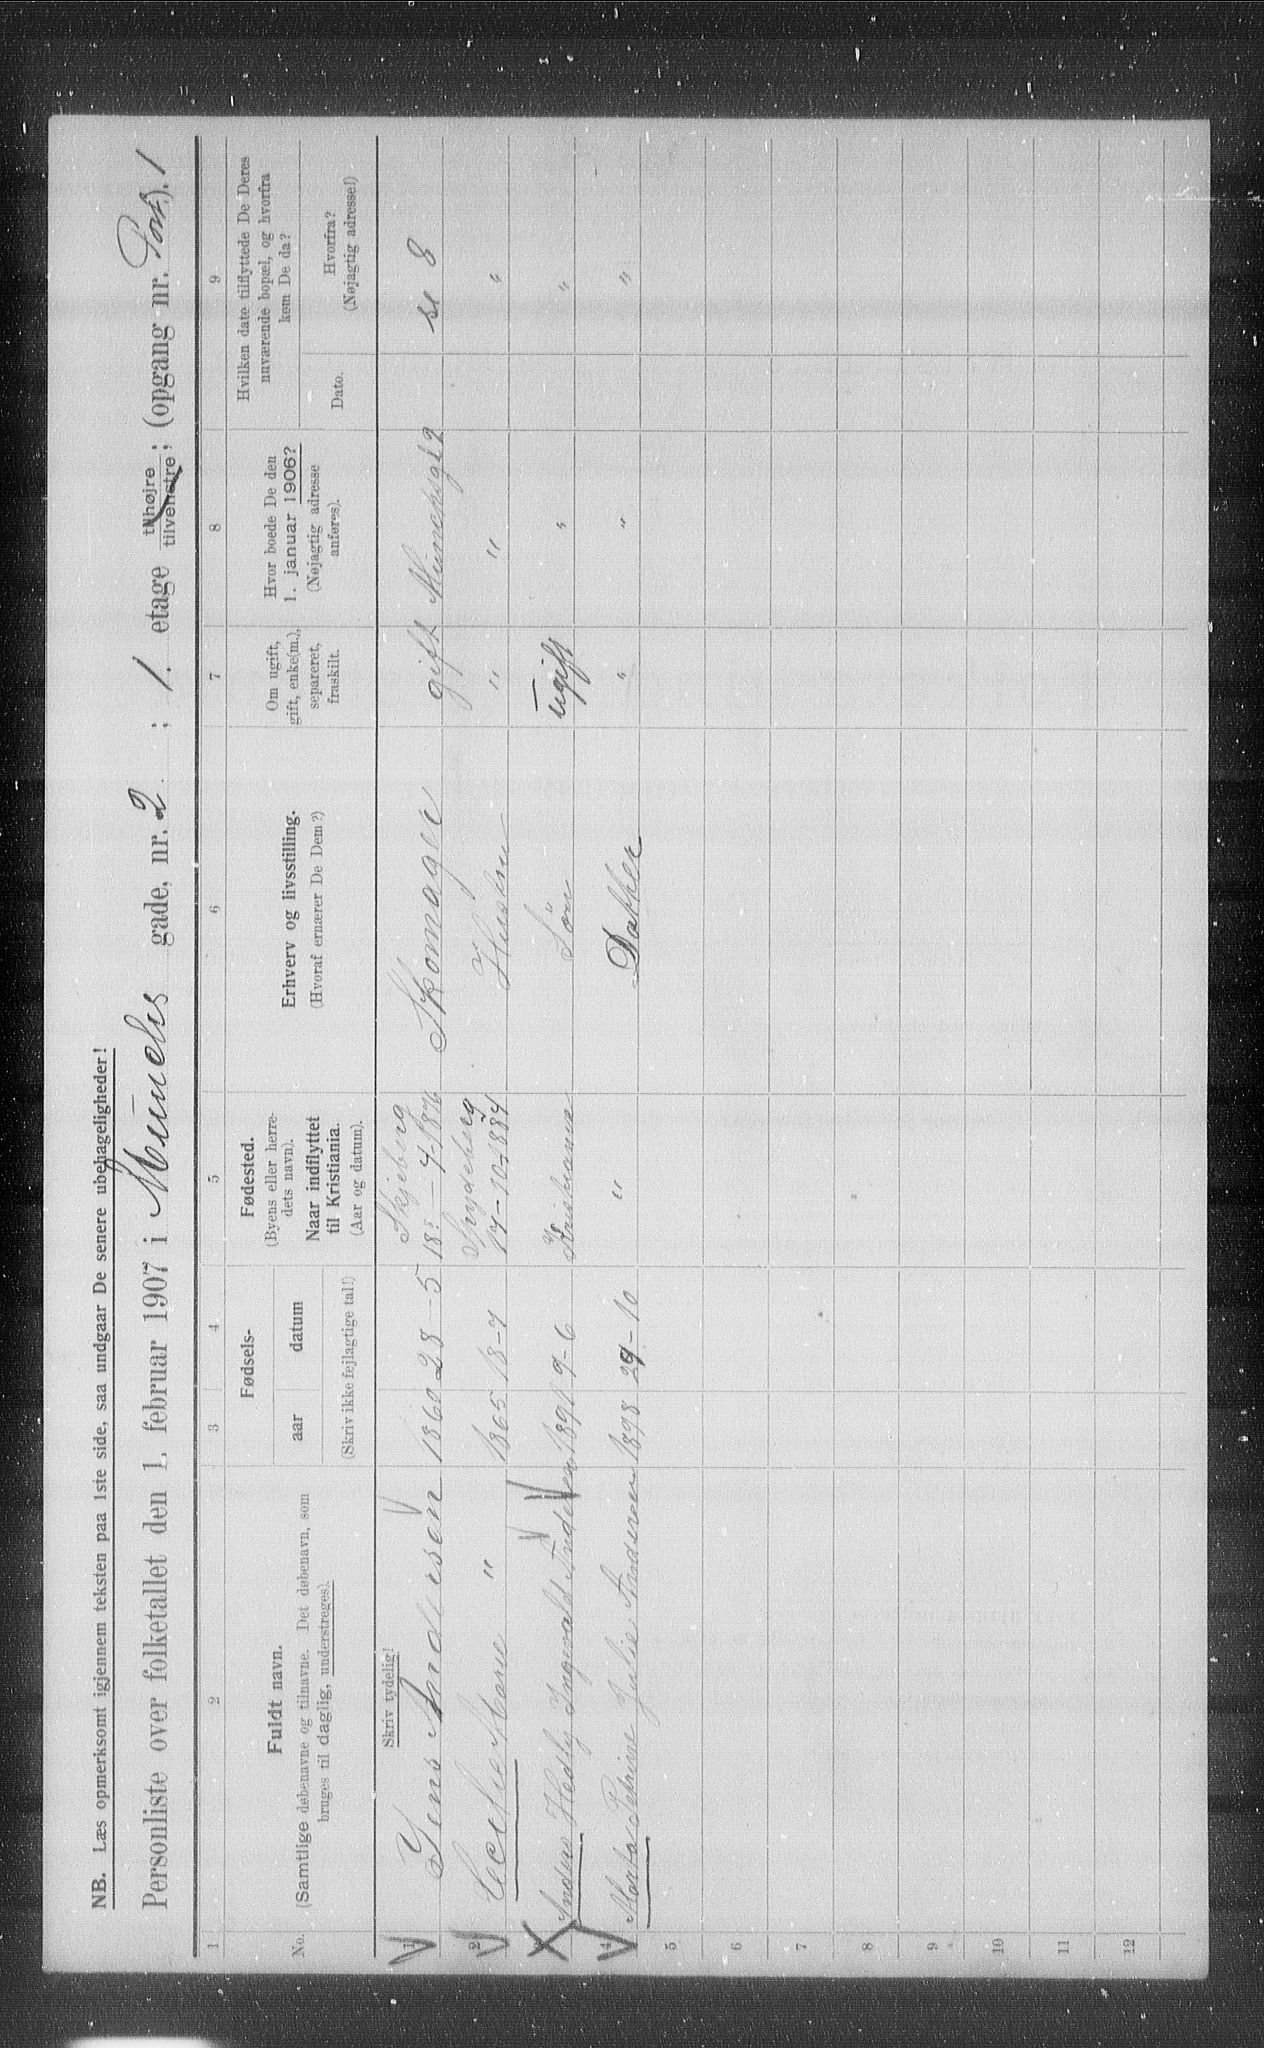 NB. Læs opmerksomt igjennem teksten paa 1ste side, saa undgaar De senere ubehageligheder!
Personliste over folketallet den 1. februar 1907 i Münchs gade, nr. 2 ; 1. etage tilhøjre ; tilvenstre ; (opgang nr. Port). 1
1 2 3 4 5 6 7 8 9
No.
Fuldt navn.
(Samtlige døbenavne og tilnavne. Det døbenavn, som
bruges til daglig, understreges).
Fødsels-
aar datum
(Skriv ikke fejlagtige tal!)
Fødested.
(Byens eller herre-
dets navn).
Naar indflyttet
til Kristiania.
(Aar og datum).
Erhverv og livsstilling.
(Hvoraf ernærer De Dem?)
Om ugift,
gift, enke(m.),
separeret,
fraskilt.
Hvor boede De den
1. januar 1906?
(Nøjagtig adresse
anføres).
Hvilken date tilflyttede De Deres
nuværende bopæl, og hvorfra
kom De da?
Dato.
Hvorfra?
(Nøjagtig adresse!)
Skriv tydelig!
1 Jens Andersen 1860 28-5 Skjeberg 1876 Skomager gift se 8
2 Marie " 1865 18-7 Spydeberg 1884 Hustru " " "
3 Anders Hedly Ingvald Andersen 1891 9-6 Kristiania Søn ugift " "
4 Marta Petrine Julie Andersen 1898 29-10 " Datter " " "
5
6
7
8
9
10
11
12